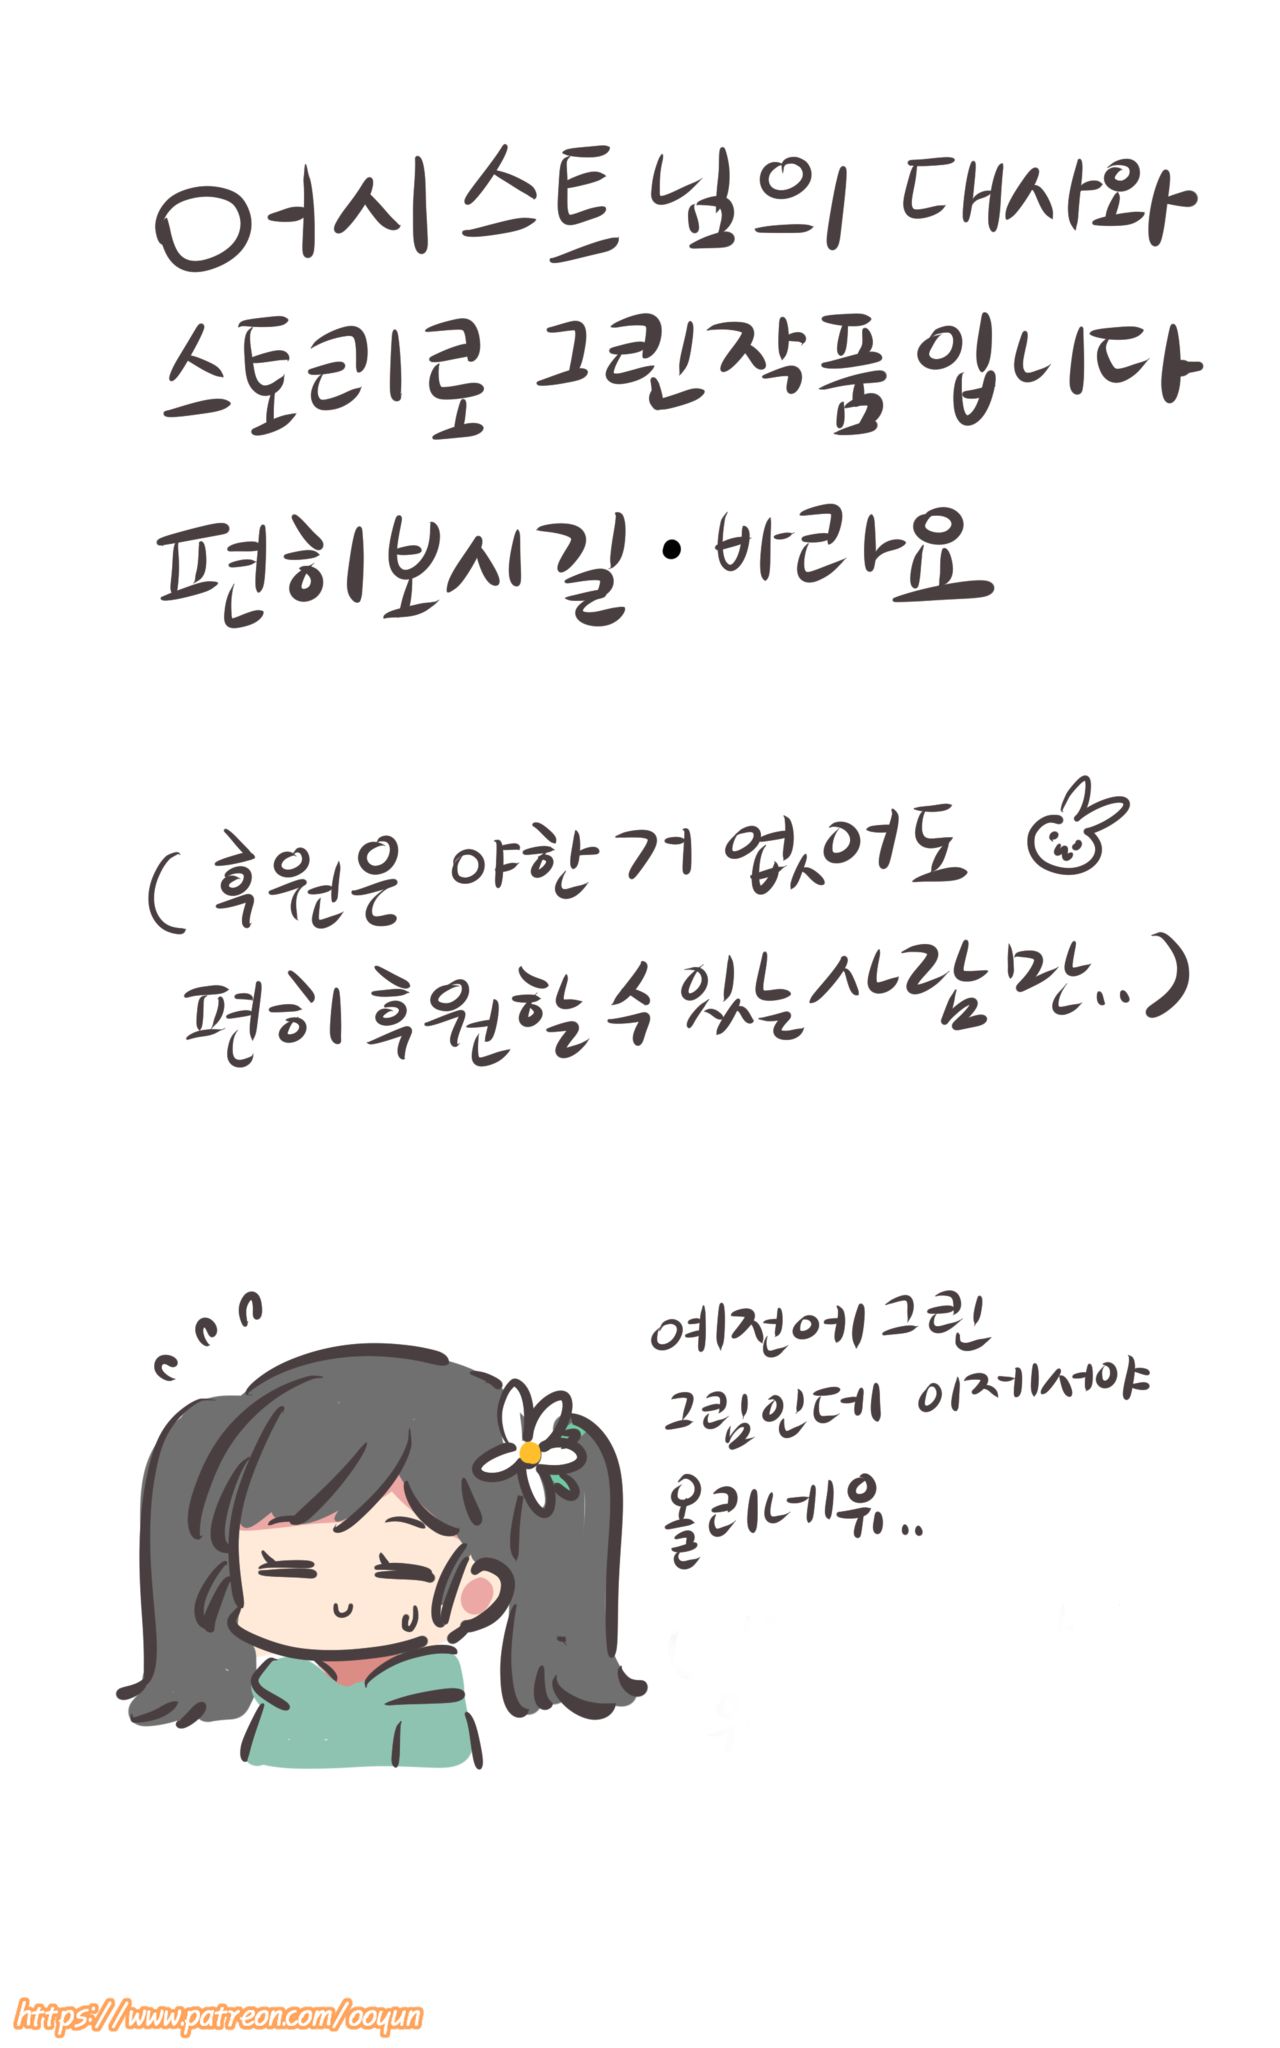 어시스트님의 대사와
스토리로 그린작품입니다
편히보시길 · 바라요
(후원은 야한거 없어도
편히 후원할 수 있는 사람만..)
예전에 그린
그림인데 이제서야
올리네유..
https://www.patreon.com/ooyun